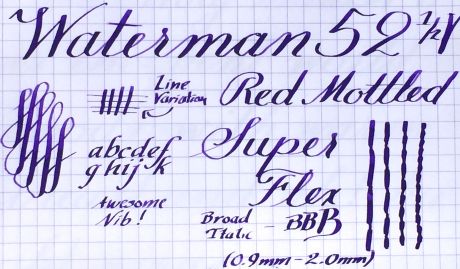 Waterman 52 1/2 V
Line
Variation
Red Mottled
abcdef
ghijk
Super
Flex
Awesome
Nib!
Broad
Italic - BBB
(0.9mm - 2.0mm)